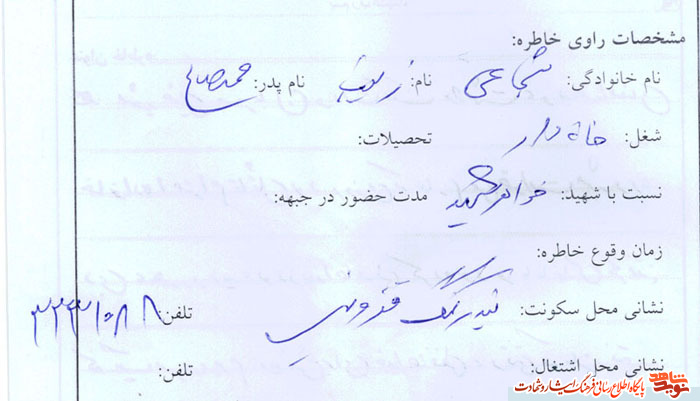 مشخصات راوی خاطره:
نام خانوادگی: شجاعی نام: زینب نام پدر: محمد صالح
شغل: خانه دار تحصیلات:
نسبت با شهید: خواهر شهید مدت حضور در جبهه:
زمان وقوع خاطره:
نشانی محل سکونت: بندر گنگ فردوسی تلفن: ۳۲۳۱۰۸۸
نشانی محل اشتغال: تلفن:
نوید شاهد
پایگاه اطلاع رسانی فرهنگ ایثار و شهادت